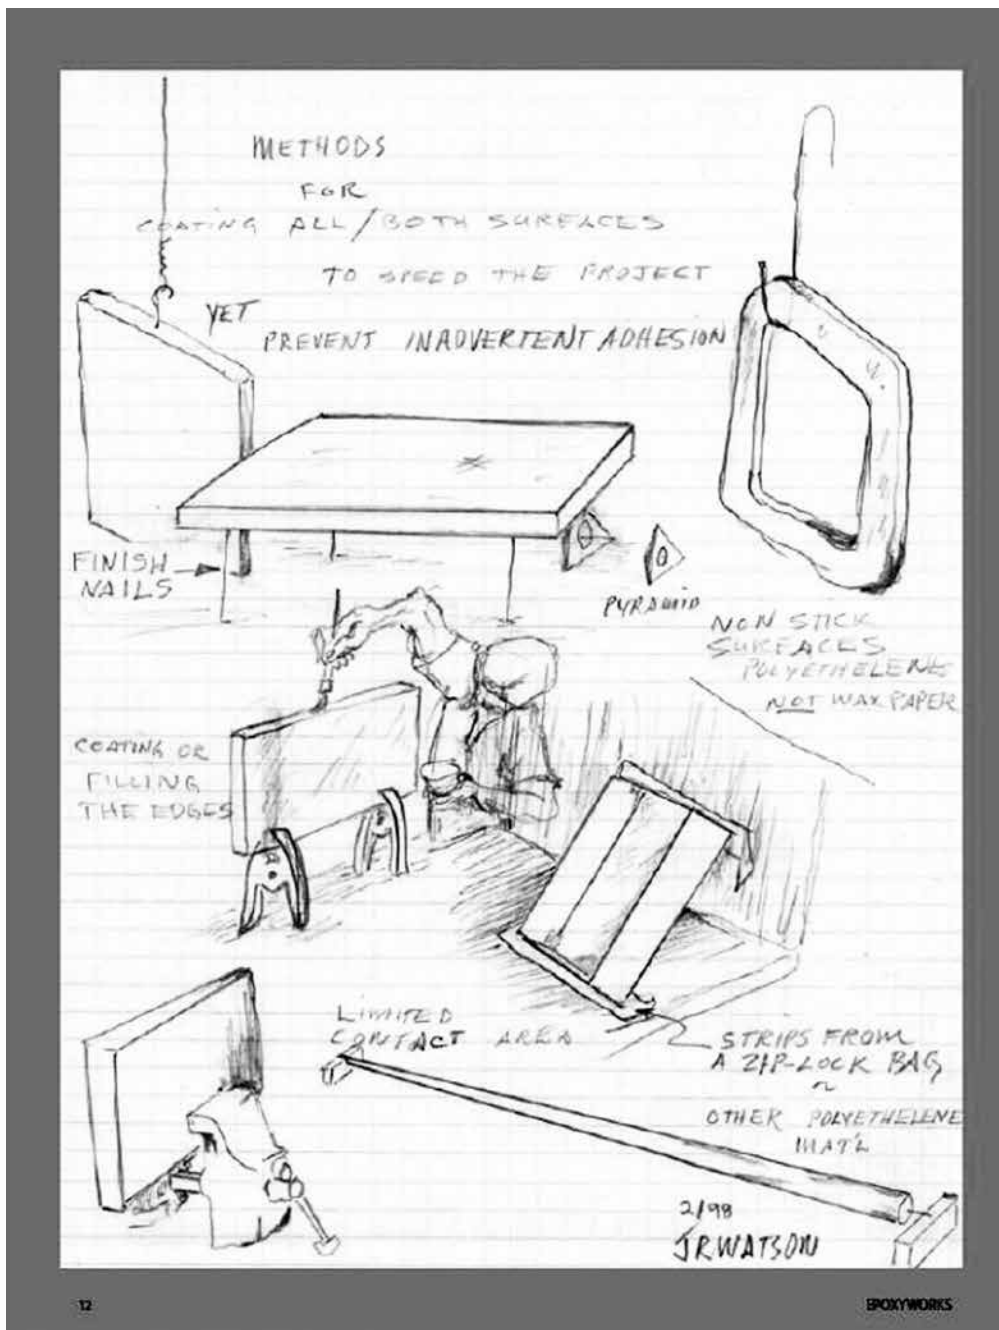 METHODS
FOR
COATING ALL/BOTH SURFACES
TO SPEED THE PROJECT
YET
PREVENT INADVERTENT ADHESION
FINISH
NAILS
PYRAMID
NON STICK
SURFACES
POLYETHELENE
NOT WAX PAPER
COATING OR
FILLING
THE EDGES
LIMITED
CONTACT AREA
STRIPS FROM
A ZIP-LOCK BAG
OTHER POLYETHELENE
MAT'L
2/98
JRWATSON
12
EPOXYWORKS